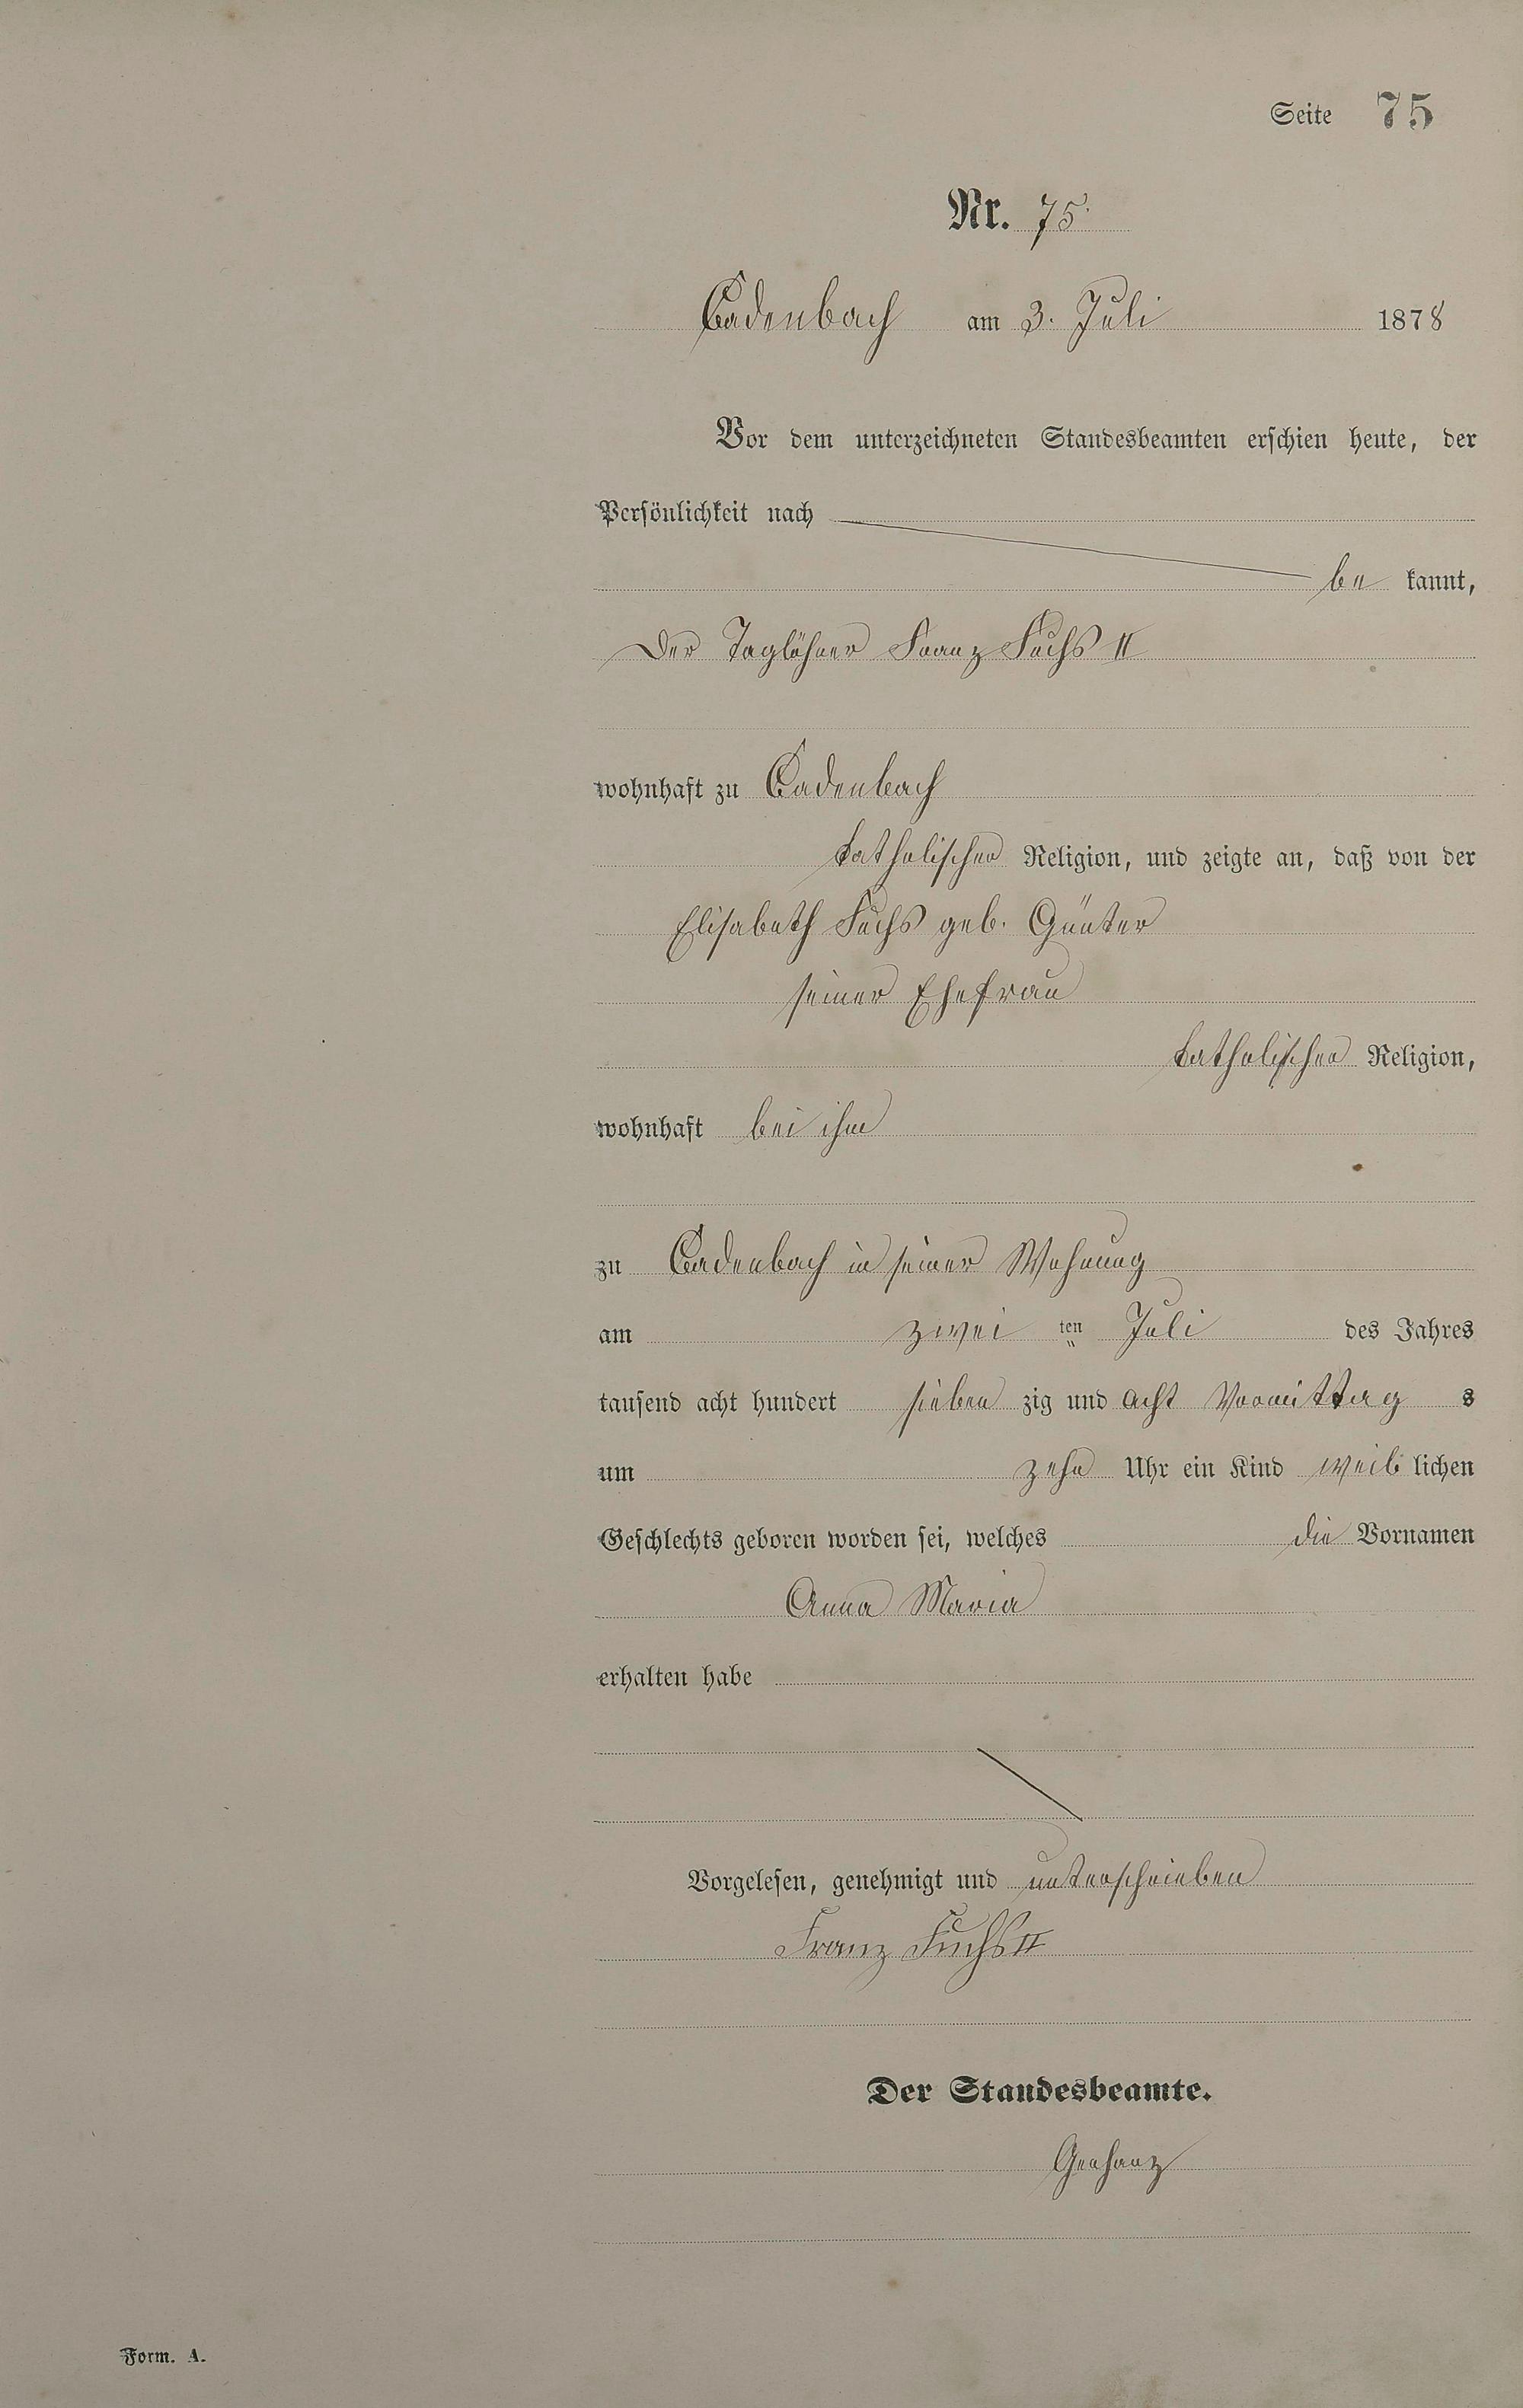 Seite 75
Nr. 75.
Cadenbach am 3. Juli 1878
Vor dem unterzeichneten Standesbeamten erschien heute, der
Persönlichkeit nach
be kannt,
Der Taglöhner Franz Fuchs II
wohnhaft zu Cadenbach
katholischer Religion, und zeigte an, daß von der
Elisabeth Fuchs geb. Günter
seiner Ehefrau
katholischer Religion,
wohnhaft bei ihm
zu Cadenbach in seiner Wohnung
am zwei ten Juli des Jahres
tausend acht hundert sieben zig und acht Vormittag s
um zehn Uhr ein Kind weib lichen
Geschlechts geboren worden sei, welches die Vornamen
Anna Maria
erhalten habe
Vorgelesen, genehmigt und unterschrieben
Franz Fuchs II
Der Standesbeamte.
Form. A.